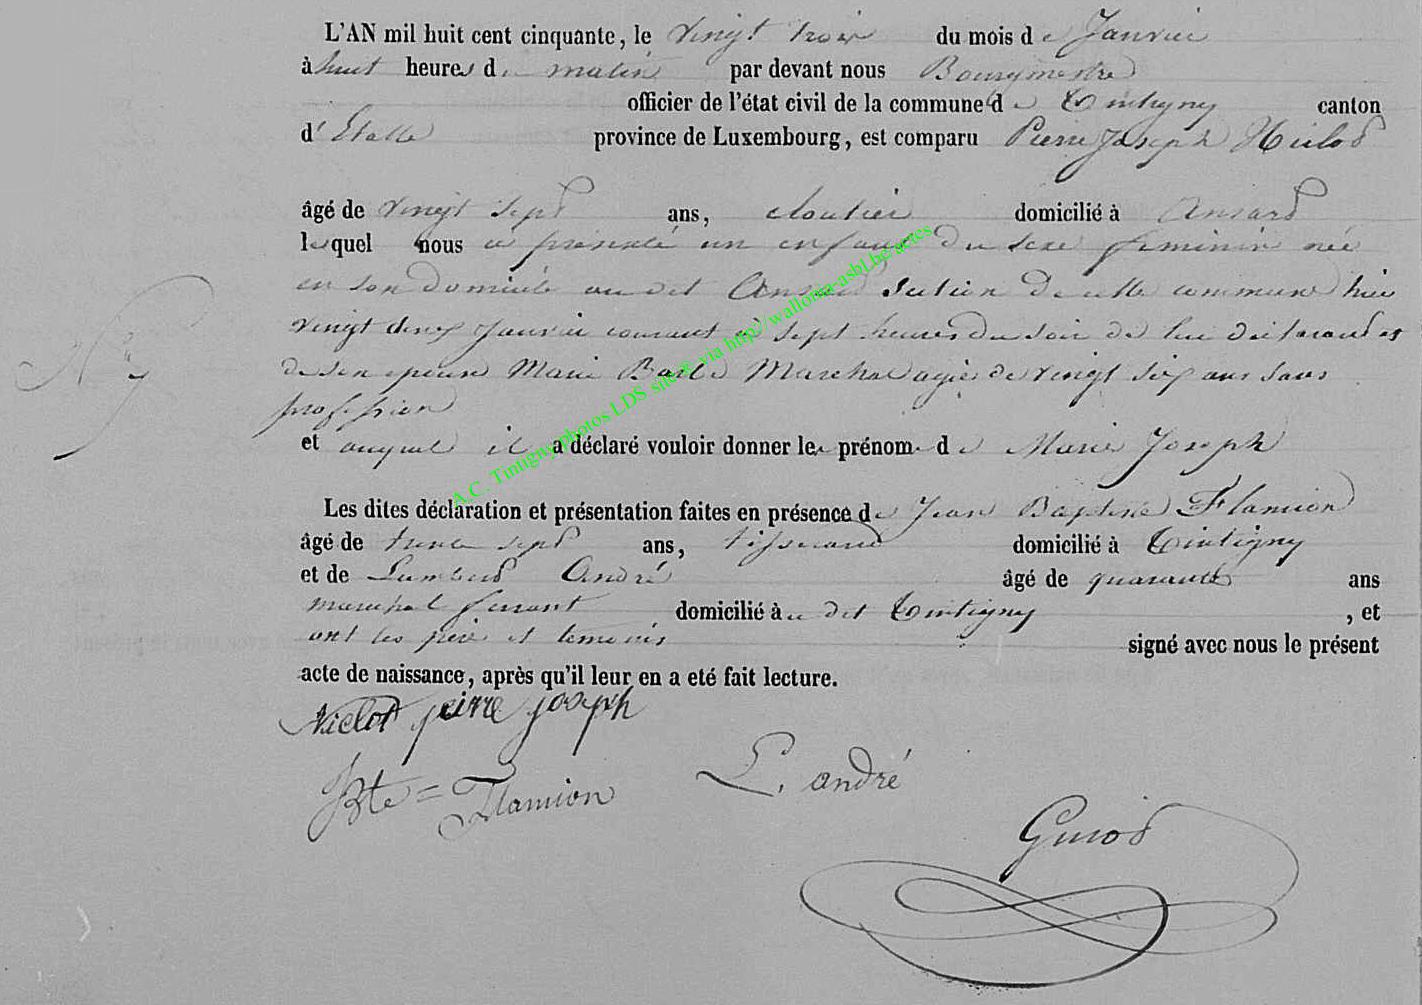 L'AN mil huit cent cinquante, le vingt trois du mois de Janvier
à huit heures du matin par devant nous Bourgmestre
officier de l'état civil de la commune de Tintigny canton
d'Etalle province de Luxembourg, est comparu Pierre Joseph Niclot
âgé de vingt sept ans, cloutier domicilié à Ansart
lequel nous a présenté un enfant du sexe féminin née
en son domicile au dit Ansart section de cette commune hier
vingt deux Janvier courant à sept heures du soir de lui déclarant et
de son épouse Marie Barbe Marchal agée de vingt six ans sans
profession
et auquel il a déclaré vouloir donner les prénom de Marie Joseph
Les dites déclaration et présentation faites en présence de Jean Baptiste Flamion
âgé de trente sept ans, tisserand domicilié à Tintigny
et de Lambert André âgé de quarante ans
marechal ferrant domicilié au dit Tintigny , et
ont les père et temoins signé avec nous le présent
acte de naissance, après qu'il leur en a eté fait lecture.
Niclot pierre joseph
JBte = Flamion L. andré
Guiot
A.C. Tintigny photos LDS site © via http://wallonia-asbl.be/actes